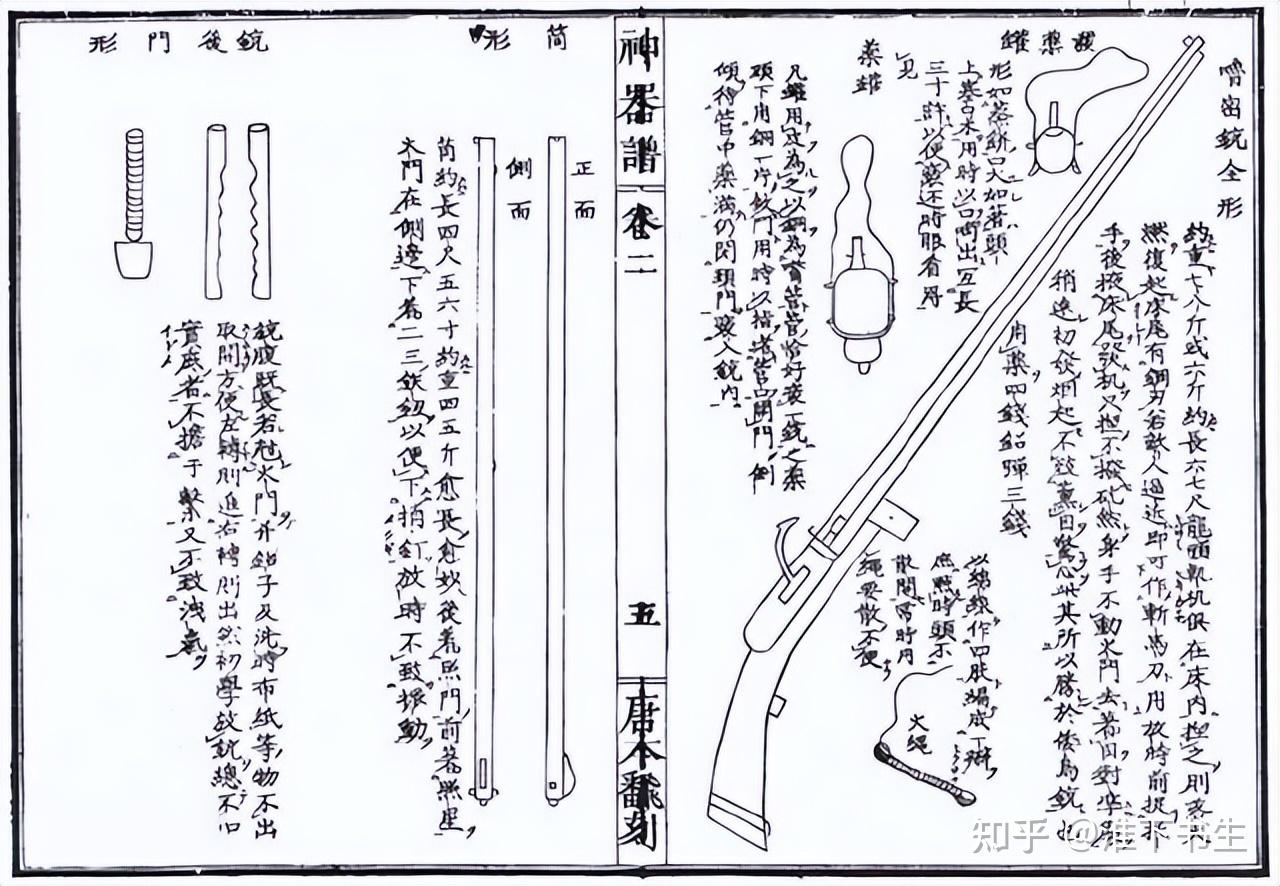 嚕密銃全形
約重七八斤或六斤約長六七尺龍頭軌机俱在床內捏之則落火
燃復起床尾有鋼刃若敵人逼近即可作斬馬刀用放時前捉托
手後掖床尾發机只捏不撥砒然身手不動火門去著目對準
稍遠初發烟起不致薰目驚心此其所以勝於倭鳥銃也
用藥四錢鉛彈三錢
發藥罐
形如蒸餅口大如著頭
上塞以木用時以口啣出亙長
三十許以便 时眼看得
見
藥罐
凡罐用皮為之以銅為管恰好裝一銃之藥
頭下用鋼一片 門用時以指堵管口開門倒
傾待管中藥滿仍閉頭門發入銃內
以綿線作四股編成一辮
庶燃時頭不
散閒常時用
繩要散不便
火繩
神器譜
卷二
五
唐本翻刻
筒形
正面
側面
筒約長四尺五六寸約重四五斤愈長愈妙後着照門前着照星
火門在側邊下着二三鉄紐以便下捎釘放時不致振動
銃後門形
銃腹既長若尅火門并鉛子及洗時布紙等物不出
取開方便左轉則進右轉則出然初學放銃總不旧
實底者不擔于繫又不致洩氣
知乎 @淮下书生